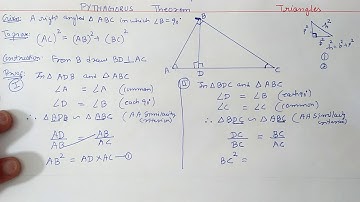 PYTHAGORUS Theorem
Triangles
Given: A right angled △ ABC in which ∠B=90°
To prove (AC)² = (AB)² + (BC)²
Construction: From B draw BD⊥AC
Proof:
I
In △ADB and △ABC
∠A = ∠A (common)
∠D = ∠B (each 90°)
∴ △ADB ∽ △ABC (AA similarity criterion)
AD/AB = AB/AC
AB² = AD×AC —①
II
In △BDC and △ABC
∠D = ∠B (each 90°)
∠C = ∠C (common)
∴ △BDC ∽ △ABC (AA similarity criterion)
DC/BC = BC/AC
BC² =
B
A
D
C
P
B
h²=b²+p²
①
②